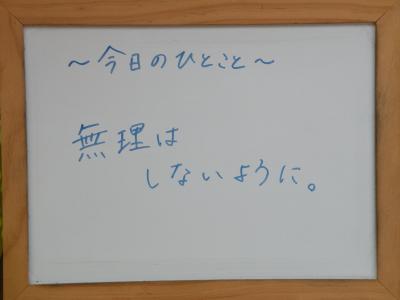 ～今日のひとこと～
無理は
しないように。